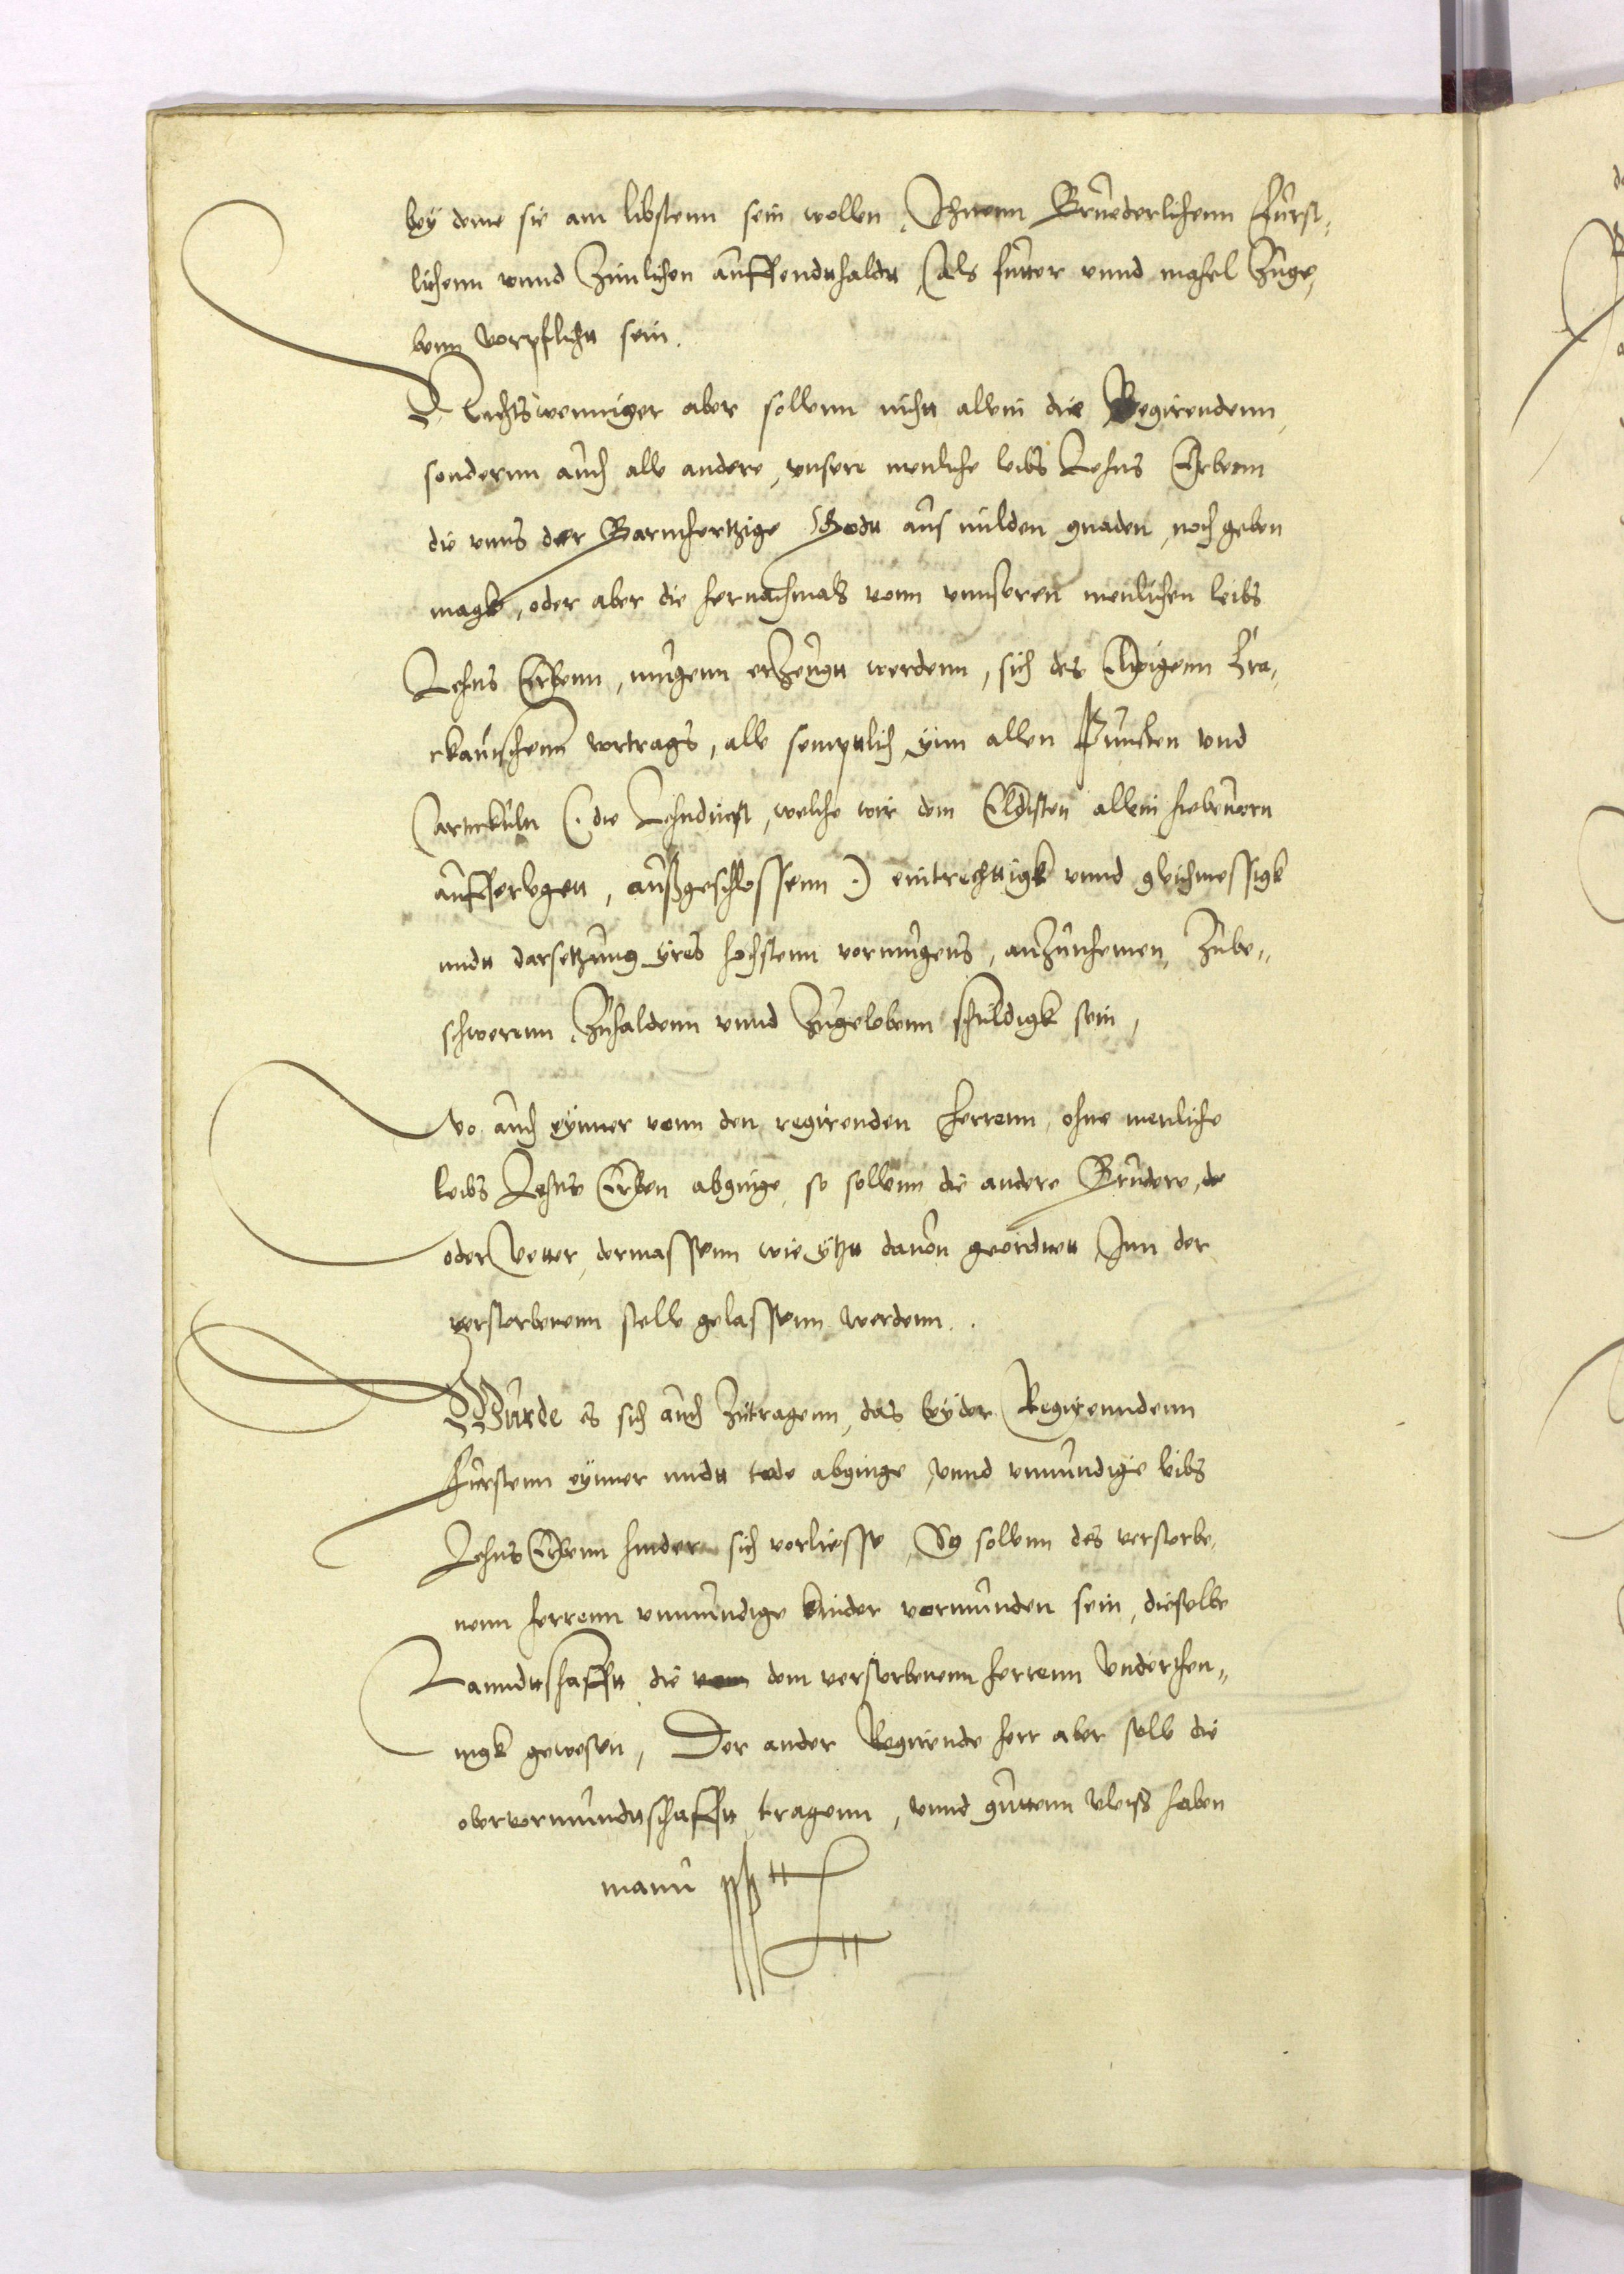 bey deme sie am libstenn sein wollen, Ihnenn Bruederlichenn Fürst-
lichenn vnnd Zimlichen auffendthaldt, (als futter vnnd mahel Zuge-
benn vorpflicht sein.
Nichtsweniger aber sollenn nicht allein die Regirendenn,
sondernn auch alle andere, vnsere menliche leibs Lehns Erbenn
die vnns der Barmhertzige Godt aus milden gnaden, noch geben
magk, oder aber die hernachmals vonn vnnseren menlichen leibs
Lehns Erbenn, mugenn erZeugt werdenn, sich des Ewigenn Kra-
ckauischenn vortrags, alle semptlich ynn allen Puncten vnd
artickuln (. die Lehndinst, welche wir dem Eldisten allein hiebeuorn
aufferleget, außgeschlossenn .) eintrechtigk vnnd gleichmessigk
midt darsetzung yres hochstenn vormugens, anZunhemen, Zube-
schwerenn, Zuhaldenn vnnd Zugelobenn schuldigk sein,
Wo auch eynner vonn den regirenden Herrenn, ohne menliche
leibs Lehns Erben abginge, so sollenn die andere Brudere,
oder Vetter, dermassenn wie ytzt dauon geordnet Inn der
verstorbenenn stelle gelassenn werdenn.
Wurde es sich auch Zutragenn, das beyder Regirenndenn
Furstenn eynner midt tode abginge, vnnd vnmundige leibs
Lehns Erbenn hinder sich vorliesse, So sollenn des verstorbe-
nenn herrenn vnmundige kinder vormunden sein, dieselbe
Lanndtschafft die dem verstorbenenn herrenn Underthen-
nigk gewesen, Der ander Regirende herr aber solle die
obervormundtschafft tragenn, vnnd guttenn vleiß haben
mann